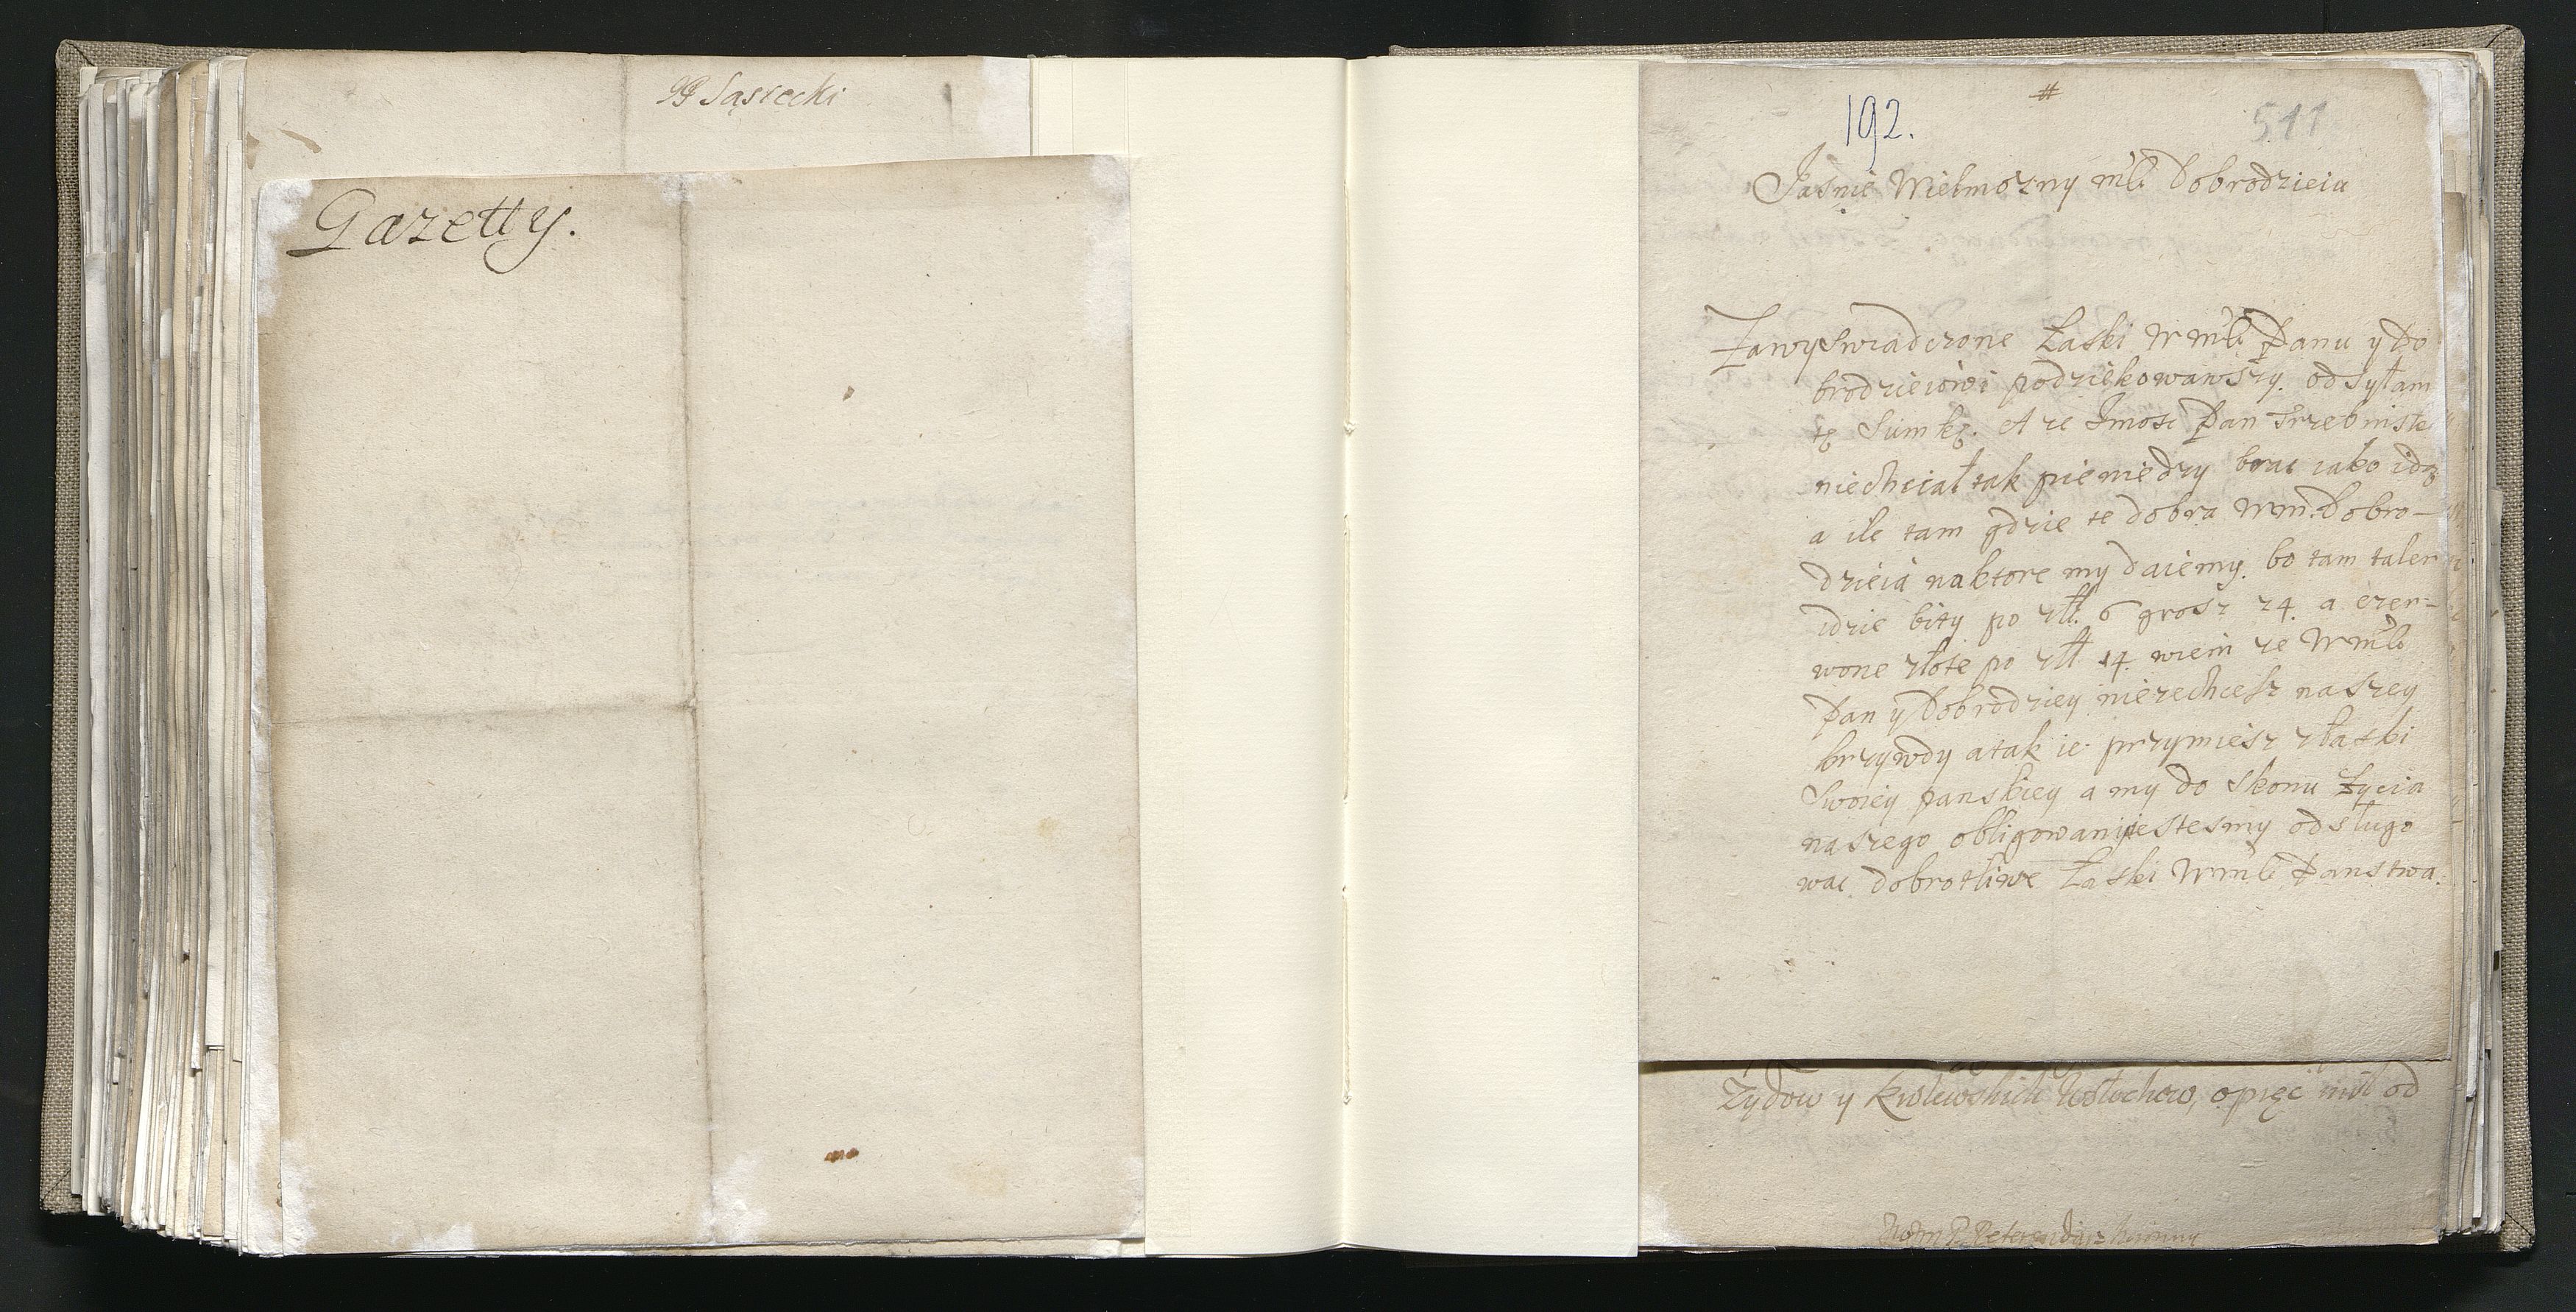 Sąsiecki
Gazetty.
#
192.
511
Jaśnie Wielmożny mśći Dobrodzieiu
Za wyswiadczone Łaski W mśći Panu y Do
brodzieiowi podziękowawszy. odsyłam
tę Sumkę. A że Jmość Pan Trzebinski
niechciał tak pieniedzy brac iako idą
a ile tam gdzie te dobra Wm: Dobro-
dzieia naktore my daiemy. bo tam taler
idzie bity po złł. 6 grosz 24. a czer-
wone złote po złł 14. wiem że W mśći
Pan y Dobrodziey niezechcesz naszey
krzywdy a tak ie przymiesz z łaski
Swoiey panskiey a my do skonu Życia
naszego obligowani jestesmy odsługo
wac dobrotliwe Łaski Wmśći Panstwa.
Zydow y Krolewskich, opięć mil od